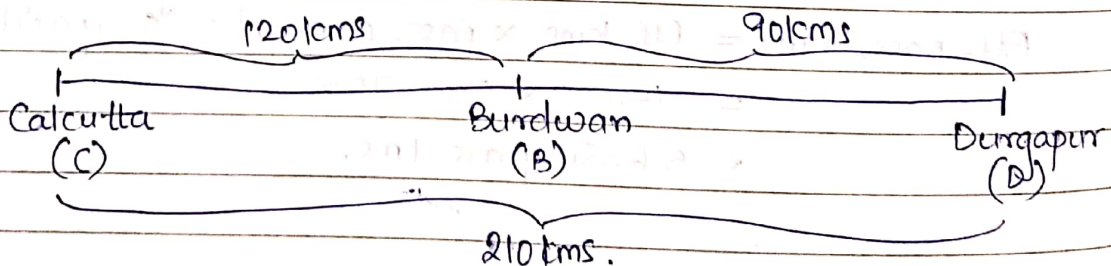 120kms 90kms
Calcutta Burdwan Durgapur
(C) (B) (D)
210kms.